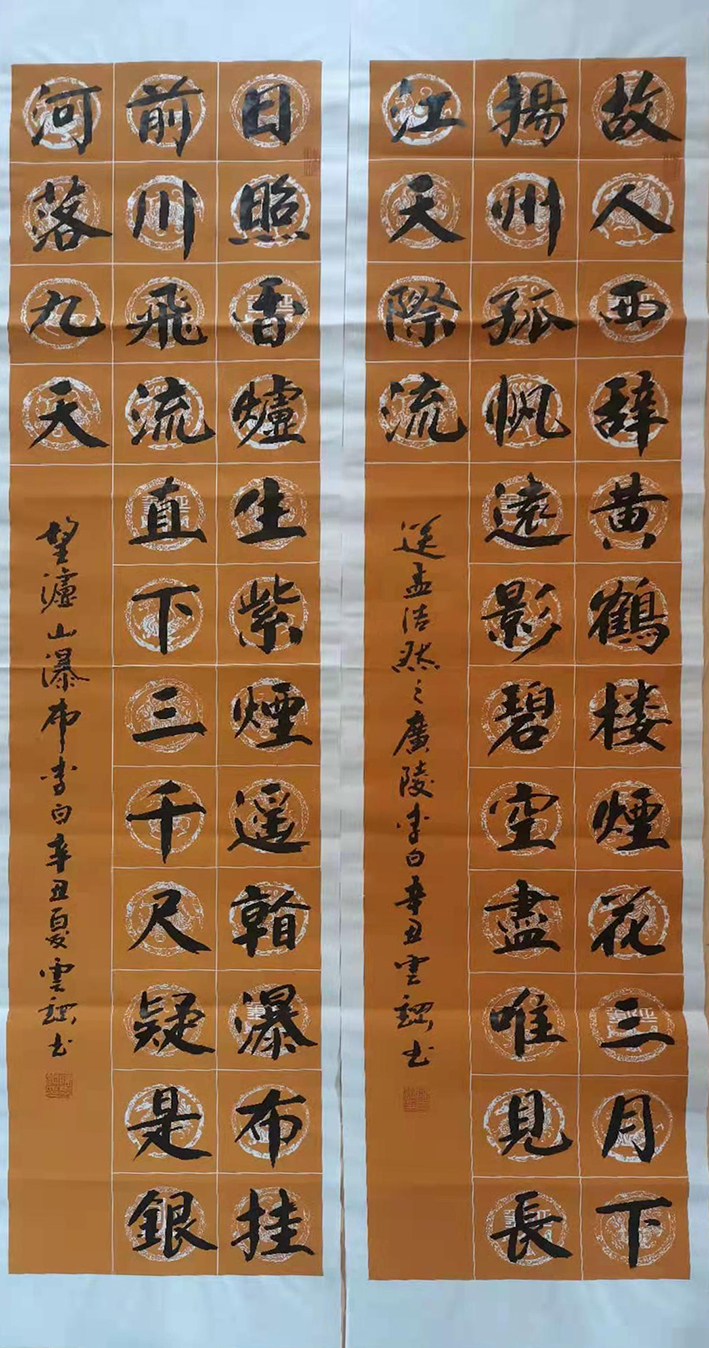 故人西辞黄鶴楼煙花三月下
揚州孤帆遠影碧空盡唯見長
江天際流
送孟浩然之廣陵李白辛丑雲书
日照香爐生紫煙遥看瀑布挂
前川飛流直下三千尺疑是銀
河落九天
望瀘山瀑布李白辛丑夏雲书